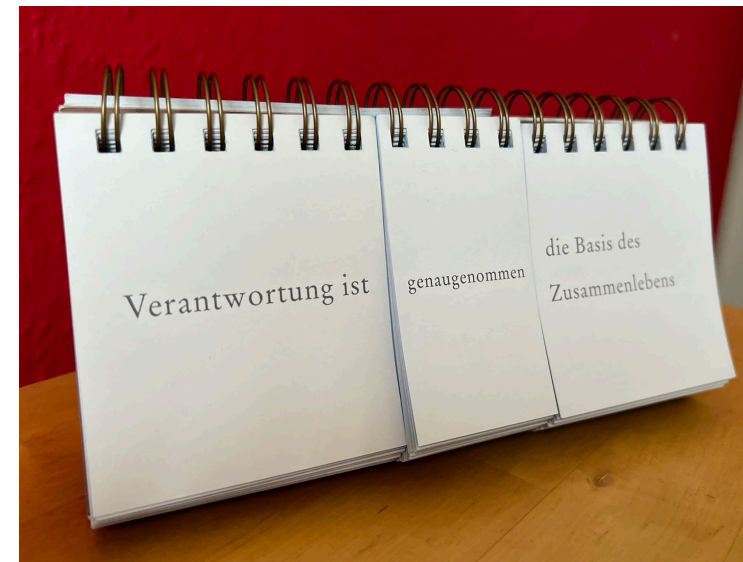 Verantwortung ist
genaugenommen
die Basis des
Zusammenlebens